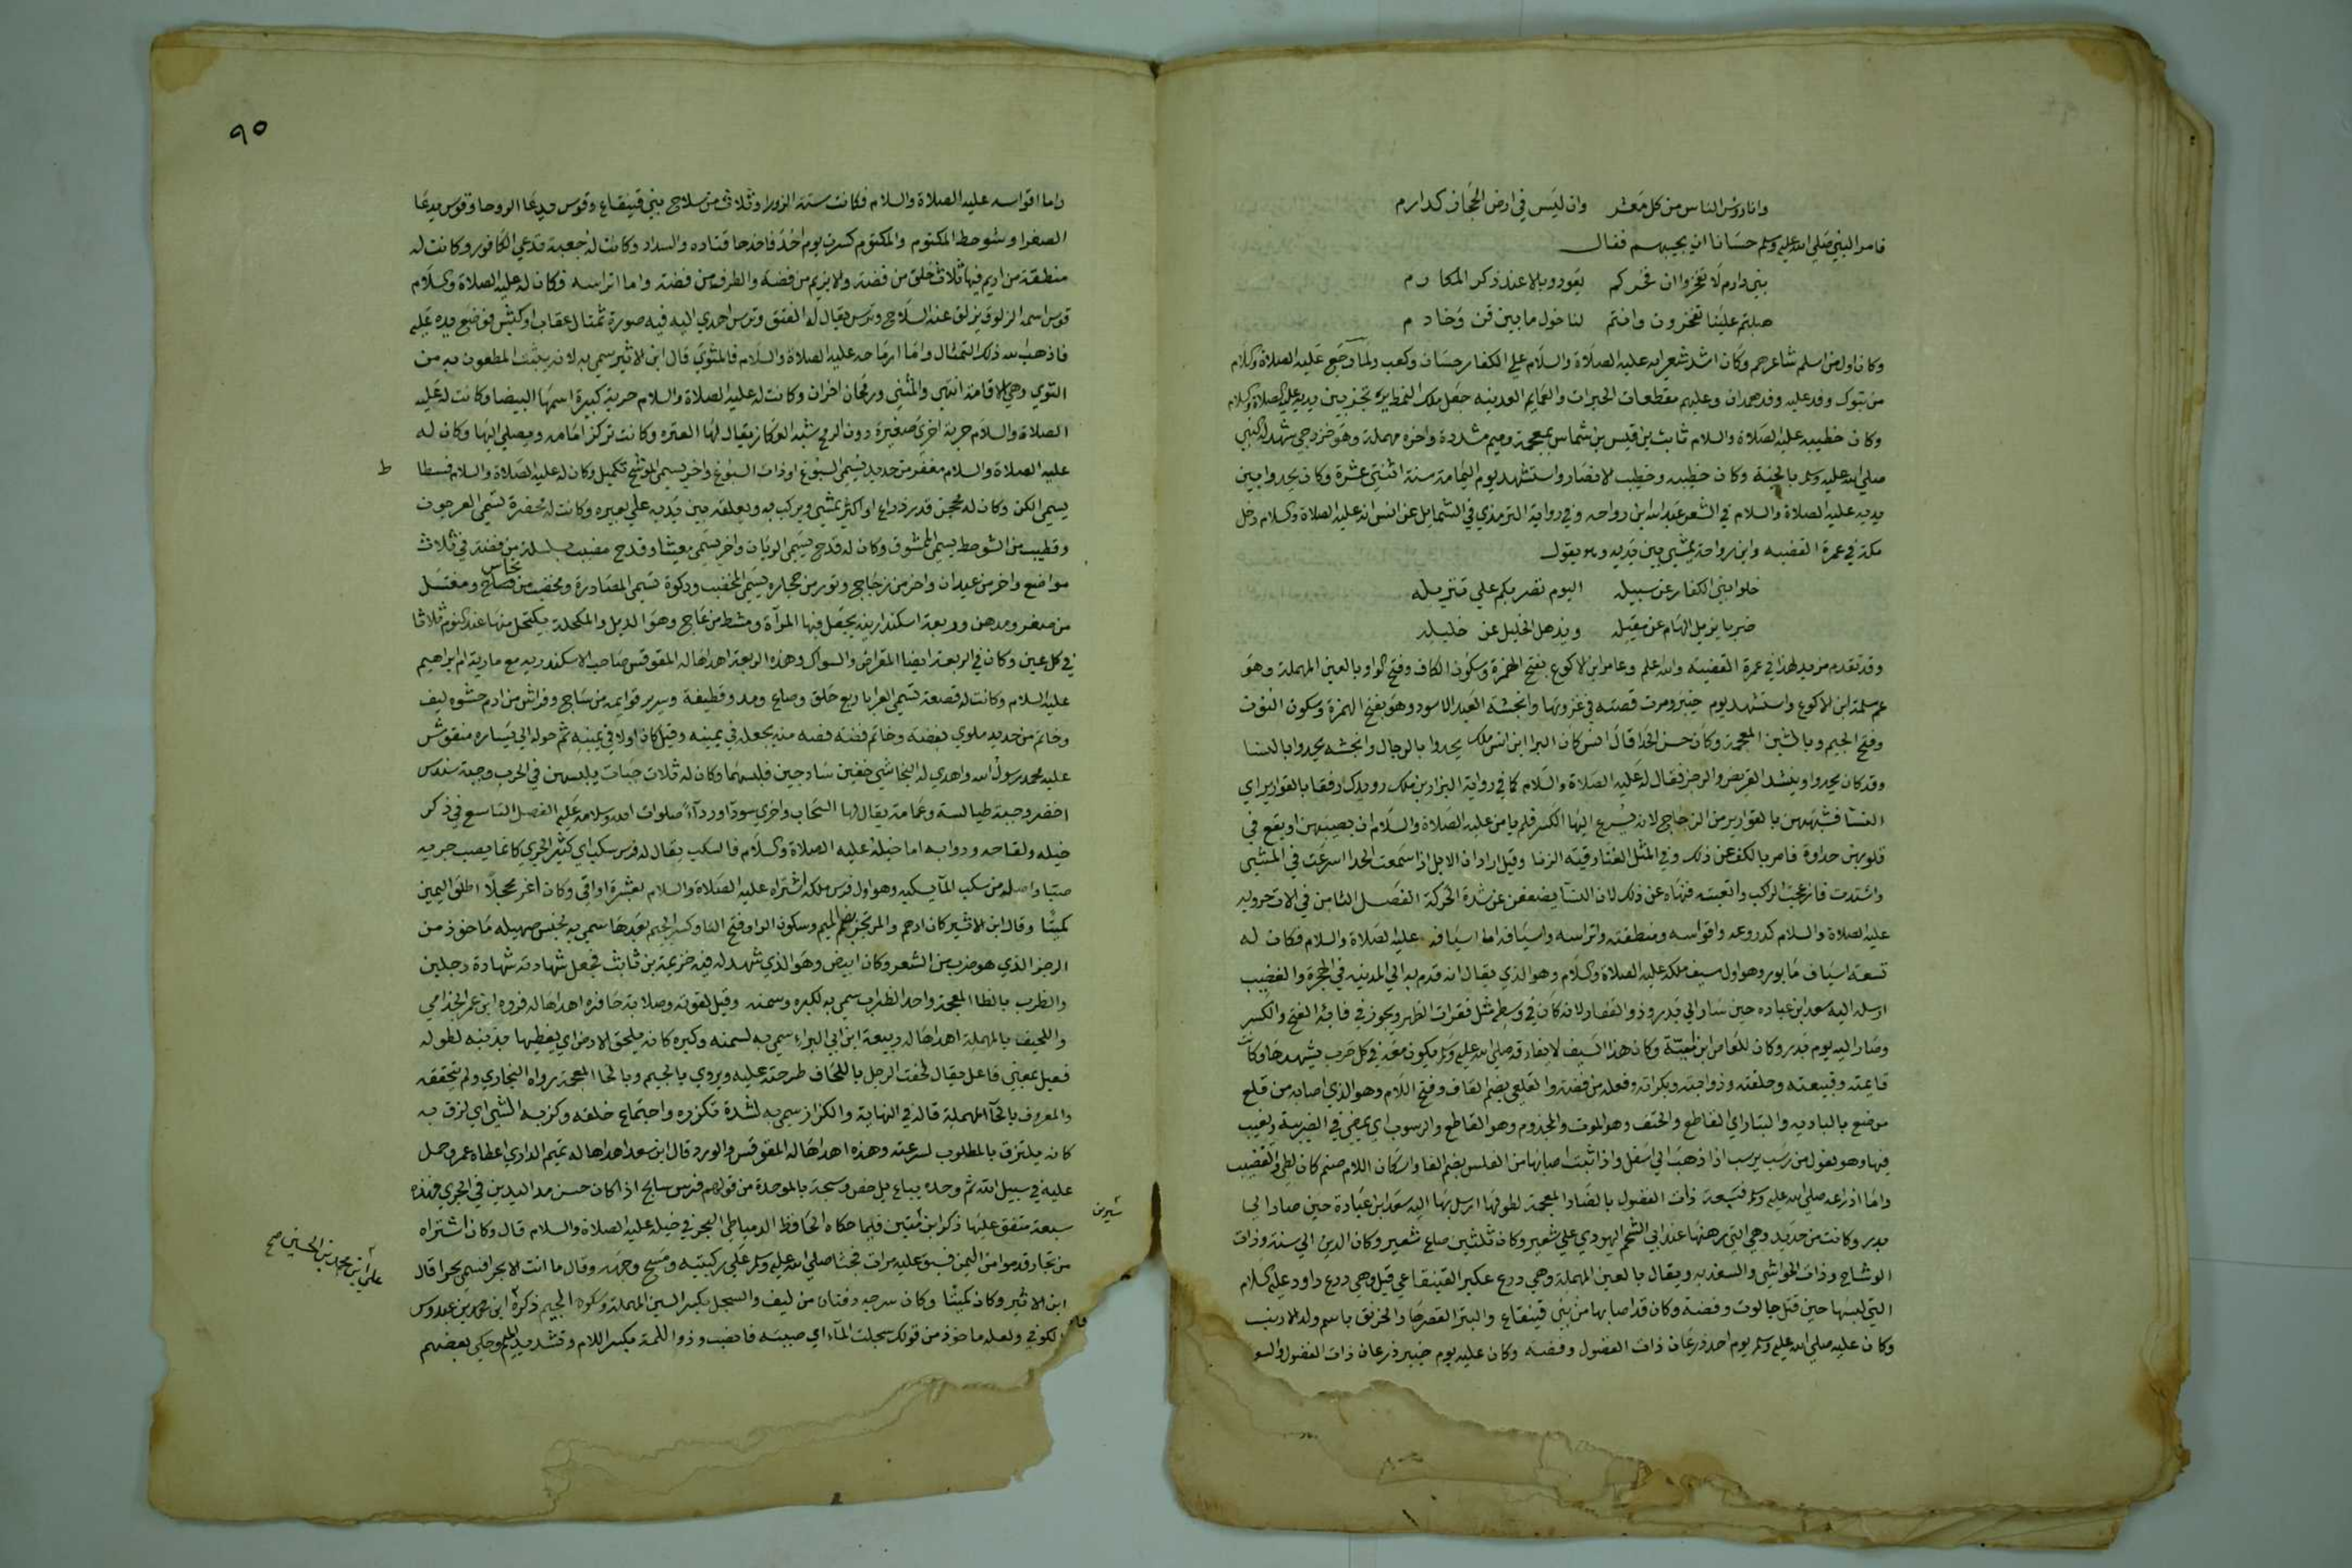 وانا رؤس الناس من كل معشر وان ليس في ارض الحجاز كدارم
فامر النبي صلى الله عليه وسلم حسانا ان يجيبهم فقال
بني دارم لا تفخروا ان فخركم يعود وبالا عند ذكر المكارم
هبلتم علينا تفخرون وانتم لنا خول ما بين قن وخادم
وكان اول من اسلم شاعرهم وكان اشد شعرايه عليه الصلاة والسلام علي الكفار حسان وكعب ولما رجع عليه الصلاة والسلام
من تبوك وفد عليه وفد همدان وعليهم مقطعات الحبرات والعمايم العدنيه جعل ملك النمط يرتجز بين يديه عليه الصلاة والسلام
وكان خطيبه عليه الصلاة والسلام ثابت بن قيس بن شماس بمعجمة وميم مشددة واخره مهملة وهو خزرجي شهد له النبي
صلى الله عليه وسلم بالجنة وكان خطيبه وخطيب الانصار واستشهد يوم اليمامة سنة اثنتي عشرة وكان يحدوا بين
يديه عليه الصلاة والسلام في الشعر عبد الله ابن رواحه وفي رواية الترمذي في الشمايل عن انس انه عليه الصلاة والسلام دخل
مكة في عمرة القضيه وابن رواحة يمشي بين يديه وهو يقول
خلوا بني الكفار عن سبيله اليوم نضربكم علي تنزيله
ضربا يزيل الهام عن مقيله ويذهل الخليل عن خليله
وقد تقدم مزيد لهذا في عمرة القضيه والله اعلم وعامر ابن الاكوع بفتح الهمزة وسكون الكاف وفتح الواو بالعين المهملة وهو
عم سلمة ابن الاكوع واستشهد يوم خيبر ومرت قصته في غزوتها وانجشة العبد الاسود وهو بفتح الهمزة وسكون النون
وفتح الجيم وبالشين المعجمة وكان حسن الحدا قال انس كان البرا ابن مالك يحدوا بالرجال وانجشه يحدوا بالنسا
وقد كان يحدوا وينشد القريض والرجز فقال له عليه الصلاة والسلام كما في رواية البرا بن ملك رويدك رفقا بالقوارير اي
النسآ فشبههن بالقوارير من الزجاج لانه يسرع اليها الكسر فلم يامن عليه الصلاة والسلام ان يصيبهن او يقع في
قلوبهن حداوة فامر بالكف عن ذلك وفي المثل الغنا رقية الزنا وقيل اراد ان الابل اذا سمعت الحدا اسرعت في المشي
واشتدت فازعجت الراكب واتعبته فنهاه عن ذلك لان النسآ يضعفن عن شدة الحركة الفصل الثامن في الات حروبه
عليه الصلاة والسلام كدروعه واقواسه ومنطقته واتراسه واسيافه اما اسيافه عليه الصلاة والسلام فكان له
تسعة اسياف مابور وهو اول سيف ملكه عليه الصلاة والسلام وهو الذي يقال انه قدم به الي المدينه في الهجرة والقضيب
ارسله اليه سعد ابن عباده حين سار الي بدر وذو الفقار لانه كان في وسطه مثل فقرات الظهر ويجوز في فايه الفتح والكسر
وصار اليه يوم بدر وكان للعاص ابن منبه وكان هذا السيف لا يفارقه صلى الله عليه وسلم يكون معه في كل حرب يشهدها وكانت
قايمته وقبيعته وحلقته وذوابته وبكراته ونعله من فضة والقلعي بضم القاف وفتح اللام وهو الذي اصابه من قلع
موضع بالباديه والبتار اي القاطع والحتف وهو الموت والمخذوم وهو القاطع والرسوب اي يمضي في الضريبة ويغيب
فيها وهو فعول من رسب يرسب اذا ذهب الي اسفل واذا ثبت اصابها من الفلس بضم الفا واسكان اللام صنم كان لطي والقضيب
واما ادراعه صلى الله عليه وسلم فسبعة ذات الفضول بالضاد المعجمة لطولها ارسل بها اليه سعد ابن عبادة حين صار الي
بدر وكانت من حديد وهي التي رهنها عند ابي الشحم اليهودي علي شعير وكان ثلثين صاع شعير وكان الدين الي سنة وذات
الوشاح وذات الحواشي والسغديه ويقال بالعين المهملة وهي درع عكير القينقاعي قيل وهي درع داود عليه السلام
التي لبسها حين قتل جالوت وفضة وكان قد اصابها من بني قينقاع والبترا لقصرها والخرنق باسم ولد الارنب
وكان عليه صلى الله عليه وسلم يوم احد ذرعان ذات الفضول وفضه وكان عليه يوم خيبر ذرعان ذات الفضول والسو
٩٥
واما اقواسه عليه الصلاة والسلام فكانت ستة الزورا وثلاث من سلاح بني قينقاع وقوس يدعا الروحا وقوس يدعا
الصفرا وشوحط والكتوم والمكتوم كسرت يوم احد فاخذها قتاده والسداد وكانت له جعبة تدعي الكافور وكانت له
منطقة من اديم فيها ثلاث حلق من فضة والابزيم من فضة والطرف من فضة واما اتراسه فكان له عليه الصلاة والسلام
قوس اسمه الزلوق يزلق عنه السلاح وترس يقال له الفتق وترس اهدي اليه فيه صورة تمثال عقاب او كبش فوضع يده عليه
فاذهب الله ذلك التمثال واما ارماحه عليه الصلاة والسلام فالمثوي قال ابن الاثير سمي به لانه يثبت المطعون به من
الثوي وهي الاقامة انتهي والمثني ورمحان اخران وكانت له عليه الصلاة والسلام حربة كبيرة اسمها البيضا وكانت له عليه
الصلاة والسلام حربة اخري صغيرة دون الرمح شبه العكاز يقال لها العنزه وكانت تركز امامه ويصلي اليها وكان له
عليه الصلاة والسلام مغفر من حديد يسمي السبوغ او ذات السبوغ واخر يسمي الموشح تكميل وكان له عليه الصلاة والسلام فسطا
ط
يسمي الكن وكان له محجن قدر ذراع او اكثر يمشي ويركب به ويعلقه بين يديه علي بعيره وكانت له مخصرة تسمي العرجون
وقضيب من الشوحط يسمي الممشوق وكان له قدح يسمي الريان واخر يسمي مغيثا وقدح مضبب بسلسلة من فضة في ثلاث
مواضع واخر من عيدان واخر من زجاج وتور من حجاره يسمي المخضب وركوة تسمي الصادرة ومخضب من نحاس ومغتسل
من صفر ومدهن وربعة اسكندرانيه يجعل فيها المرآة ومشط من عاج وهو الدبل والمكحلة يكتحل منها عند النوم ثلاثا
في كل عين وكان في الربعة ايضا المقراض والسواك وهذه الربعة اهداها له المقوقس صاحب الاسكندريه مع مارية ام ابراهيم
عليه السلام وكانت له قصعة تسمي الغرا باربع حلق وصاع ومد وقطيفة وسرير قوايمه من ساج وفراش من ادم حشوه ليف
وخاتم من حديد ملوي بفضه وخاتم فضه فصه منه يجعله في يمينه وقيل كان اولا في يمينه ثم حوله الي يساره منقوش
عليه محمد رسول الله واهدي له النجاشي خفين ساذجين فلبسهما وكان له ثلاث جبات يلبسهن في الحرب وجبة سندس
اخضر وجبة طيالسه وعمامة يقال لها السحاب واخري سودآ وردآء صلوات الله وسلامه عليه الفصل التاسع في ذكر
خيله ولقاحه ودوابه اما خيله عليه الصلاة والسلام فالسكب يقال له فرس سكب اي كثير الجري كانما يصب جريه
صبا واصله من سكب المآ يسكبه وهو اول فرس ملكه اشتراه عليه الصلاة والسلام بعشرة اواقي وكان اغر محجلا اطلق اليمين
كميتا وقال ابن الاثير كان ادهم والمرتجز بضم الميم وسكون الراء وفتح التا وكسر الجيم بعدها سمي به لحسن صهيله ماخوذ من
الرجز الذي هو ضرب من الشعر وكان ابيض وهو الذي شهد له فيه خزيمة بن ثابت فجعل شهادته شهادة رجلين
والظرب بالظا المعجمة واحد الظراب سمي به لكبره وسمنه وقيل لقوته وصلابة حافره اهداها له فروه ابن عمر الجذامي
واللحيف بالمهملة اهداها له ربيعة ابن ابي البراء سمي به لسمنه وكبره كانه يلحق الارض اي يغطيها بذنبه لطوله
فعيل بمعني فاعل يقال لحفت الرجل باللحاف طرحته عليه ويروي بالجيم وبالخا المعجمة رواه البخاري ولم يتحققه
والمعروف بالحآ المهملة قاله في النهاية والكزاز سمي به لشدة تكزره واجتماع خلقه وكز به الشي اي لزق به
كانه يلتزق بالمطلوب لسرعته وهذه اهداها له المقوقس والورد قال ابن سعد اهداها له تميم الداري اعطاه عمر وحمل
عليه في سبيل الله ثم وجده يباع برخص وسبحة بالموحدة من قولهم فرس سابح اذا كان حسن مد اليدين في الجري فهذه
سبعة متفق عليها ذكر ابن فيما حكاه الحافظ الدمياطي البحر في خيله عليه الصلاة والسلام قال وكان اشتراه
من تجار قدموا من اليمن فسبق عليه مرات فجثا صلى الله عليه وسلم علي ركبتيه ومسح وجهه وقال ما انت الا بحر فسمي بحرا قال
علي ابن محمد بن الحسين صح
ابن الاثير وكان كميتا وكان سرجه دفتان من ليف والسجل بكسر السين المهملة وسكون الجيم ذكره ابن محمد بن عبدوس
الكوفي ولعله ماخوذ من قولك سجلت المآء اي صببته فانصب وذو اللمة بكسر اللام وتشديد الميم وحكي بعضهم